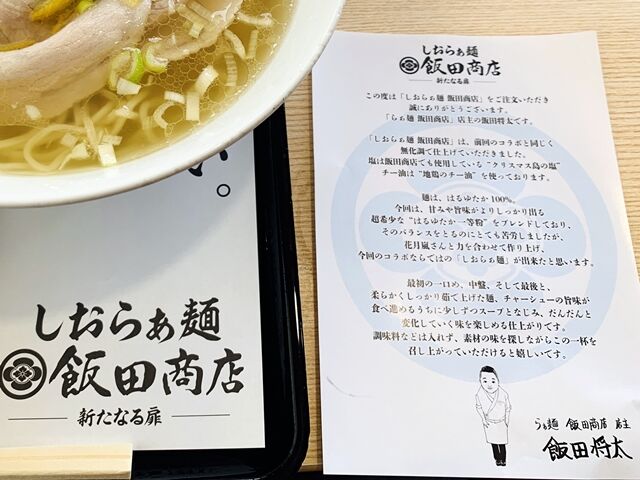 い。
しおらぁ麺
飯田商店
新たなる扉
しおらぁ麺
飯田商店
新たなる扉
この度は「しおらぁ麺 飯田商店」をご注文いただき
誠にありがとうございます。
「らぁ麺 飯田商店」店主の飯田将太です。
「しおらぁ麺 飯田商店」は、前回のコラボと同じく
無化調で仕上げていただきました。
塩は飯田商店でも使用している“クリスマス島の塩”
チー油は“地鶏のチー油”を使っております。
麺は、はるゆたか100%。
今回は、甘みや旨味がよりしっかり出る
超希少な“はるゆたか一等粉”をブレンドしており、
そのバランスをとるのにとても苦労しましたが、
花月嵐さんと力を合わせて作り上げ、
今回のコラボならではの「しおらぁ麺」が出来たと思います。
最初の一口め、中盤、そして最後と、
柔らかくしっかり茹で上げた麺、チャーシューの旨味が
食べ進めるうちに少しずつスープとなじみ、だんだんと
変化していく味を楽しめる仕上がりです。
調味料などは入れず、素材の味を探しながらこの一杯を
召し上がっていただけると嬉しいです。
らぁ麺 飯田商店 店主
飯田将太